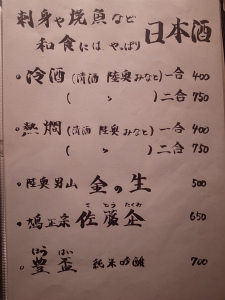 刺身や焼魚など
和食にはやっぱり 日本酒
・冷酒(清酒 陸奥みなと)一合 400
( 〃 )二合 750
・熱燗(清酒 陸奥みなと)一合 400
( 〃 )二合 750
・陸奥男山 金の生 500
さ とう たくみ
・鳩正宗 佐藤企 650
ほう はい
・豊盃 純米吟醸 700